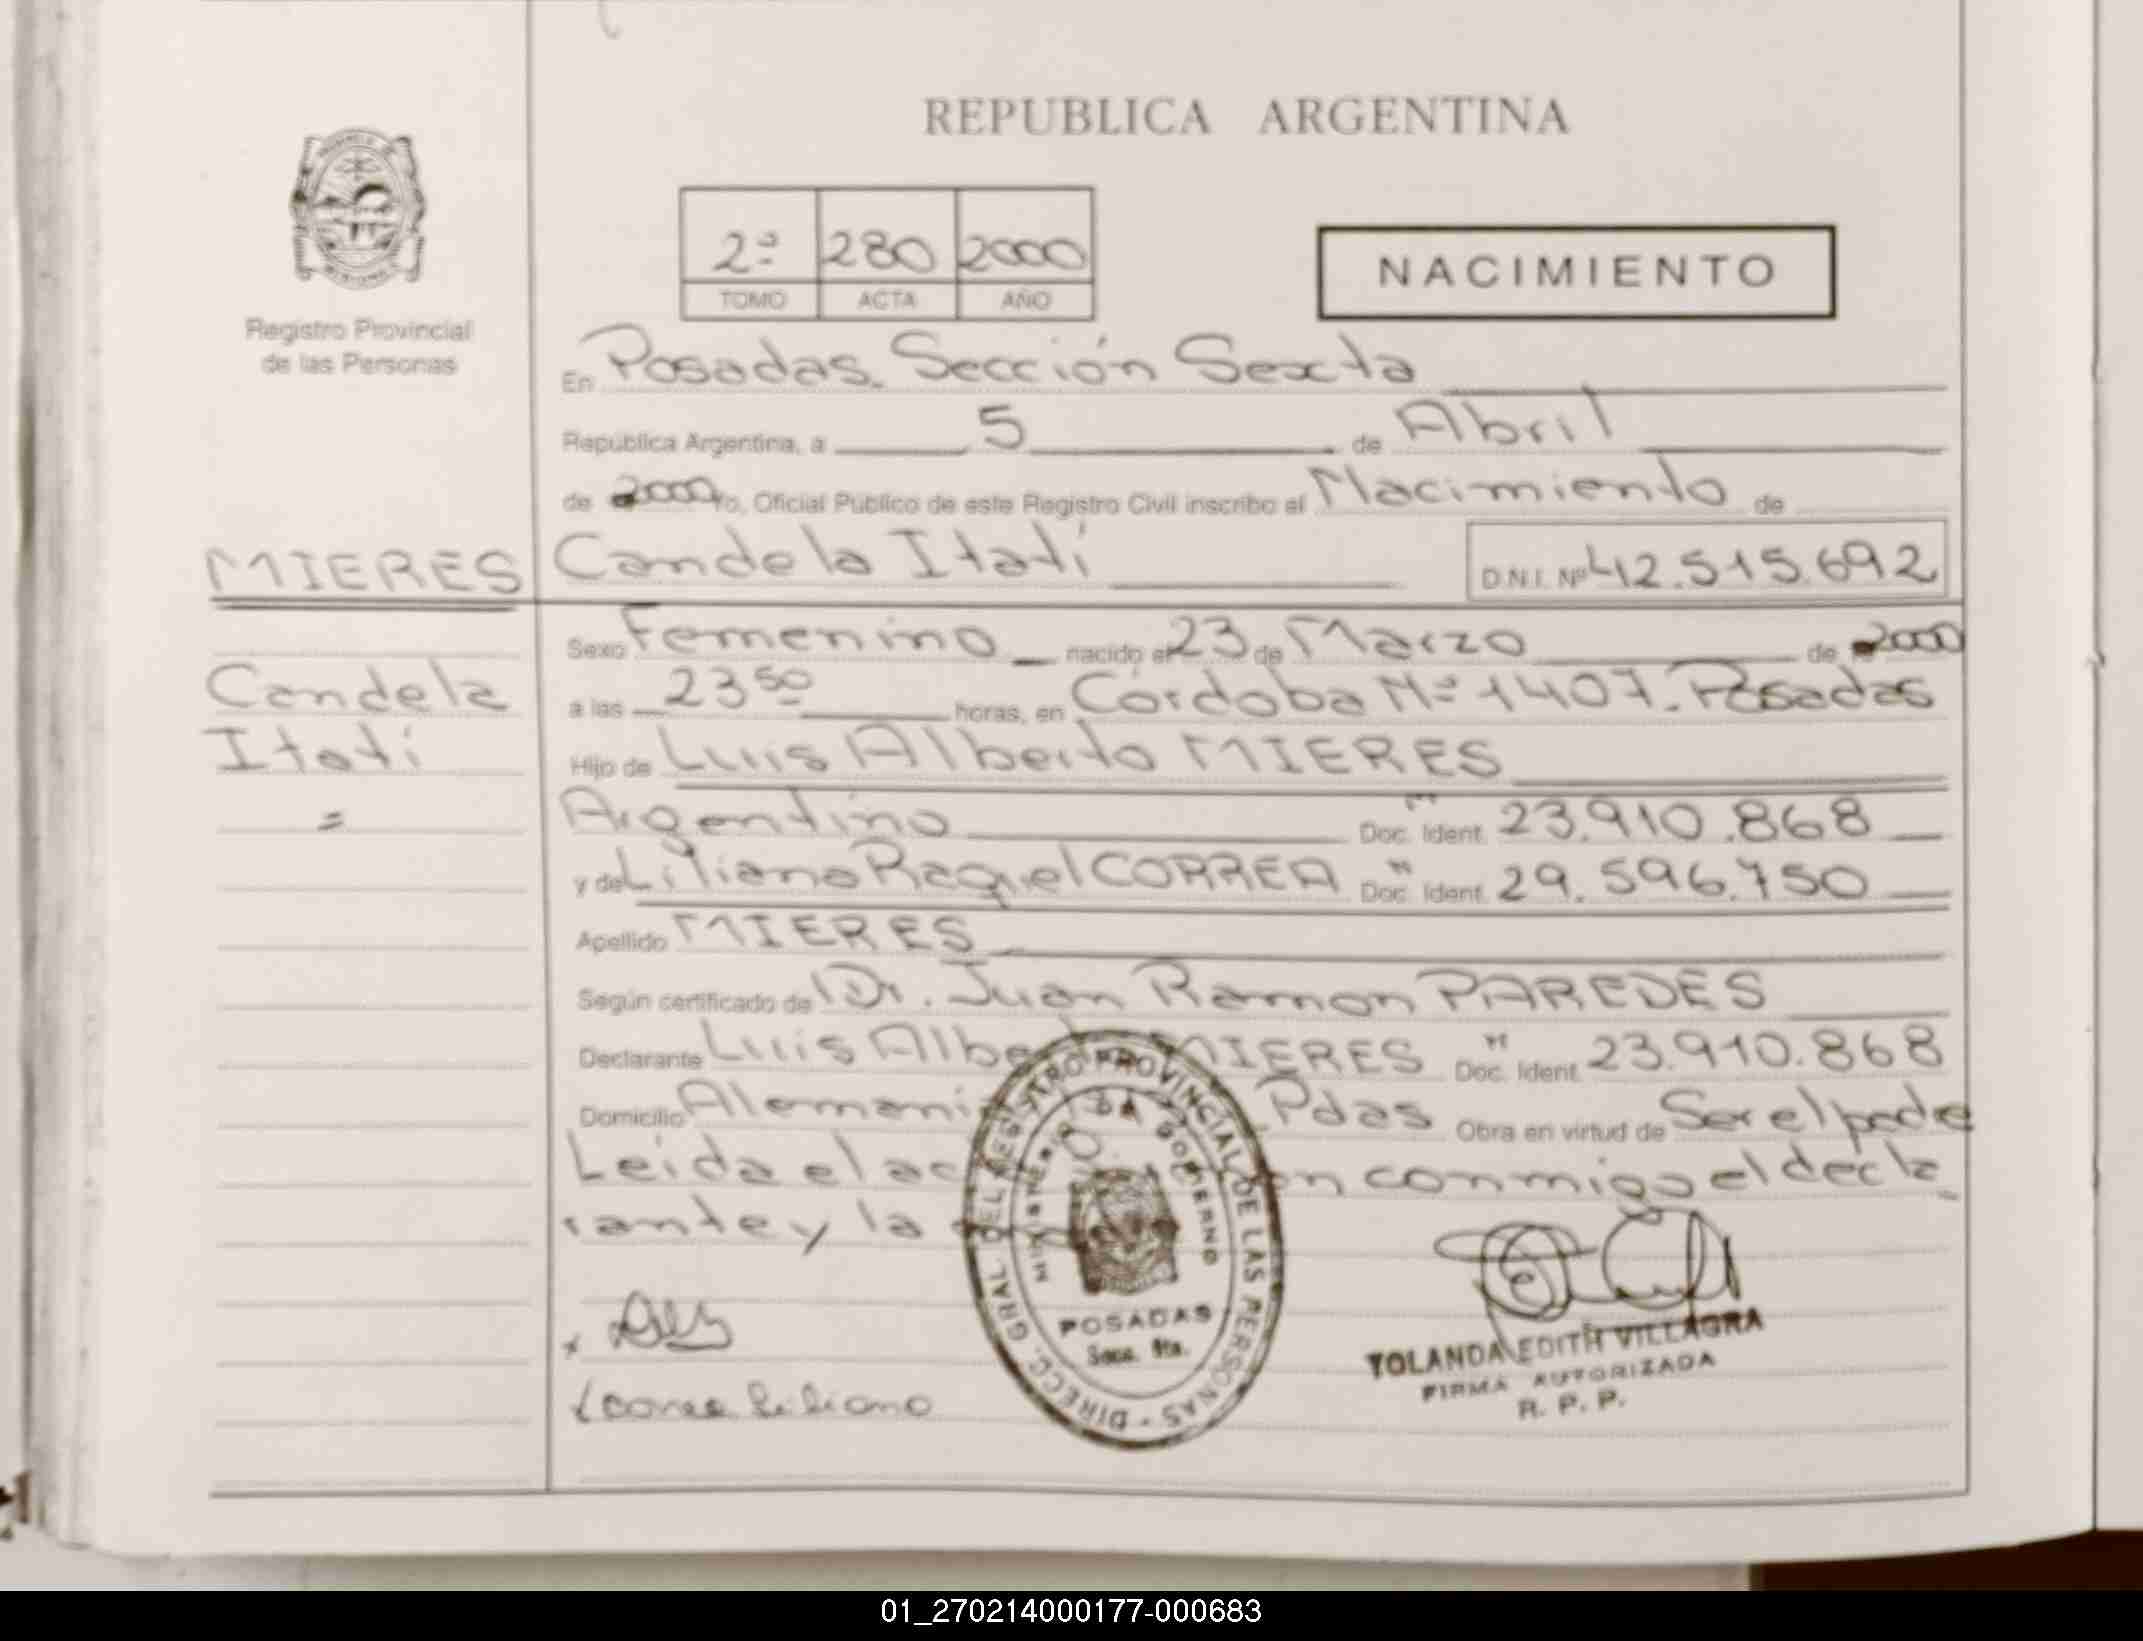 REPUBLICA ARGENTINA
2º 280 2000
TOMO ACTA AÑO
NACIMIENTO
Registro Provincial
de las Personas
En Posadas. Sección Sexta
República Argentina, a 5 de Abril
de 2000 Yo, Oficial Público de este Registro Civil inscribo el Nacimiento de
MIERES Candela Itatí D.N.I. Nº 42.515.692
Sexo Femenino nacido el 23 de Marzo de 2000
Candela
a las 23 50 horas, en Córdoba Nº 1407. Posadas
Itatí
Hijo de Luis Alberto MIERES
=
Argentino Doc. Ident. 23.910.868
y de Liliana Raquel CORREA Doc. Ident. 29.596.750
Apellido MIERES
Según certificado de Dr. Juan Ramon PAREDES
Declarante Luis Alberto MIERES Doc. Ident. 23.910.868
Domicilio Pdas Obra en virtud de Ser el padre
Leida el conmigo el decla
rante y la
DIRECC. GRAL. DEL REGISTRO PROVINCIAL DE LAS PERSONAS
MINISTERIO DE GOBIERNO
POSADAS
Secc. 6ta.
Correa Liliana
YOLANDA EDITH VILLAGRA
FIRMA AUTORIZADA
R. P. P.
01_270214000177-000683